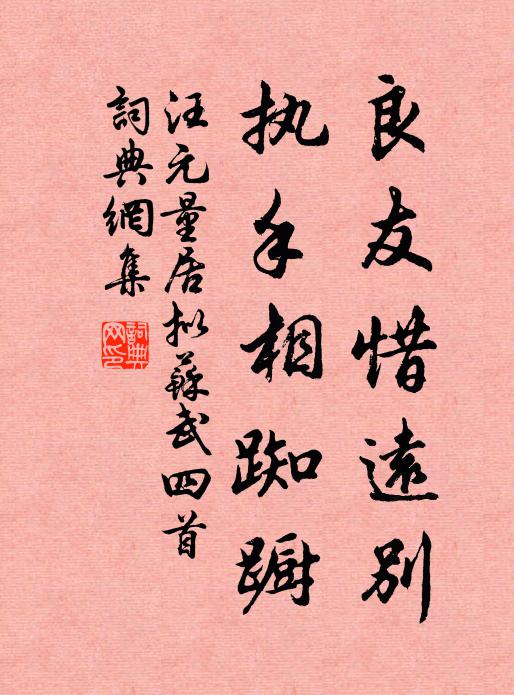 良友惜遠別
执手相踟蹰
汪元量居拟蘇武四首
詞典網集
詞典网印